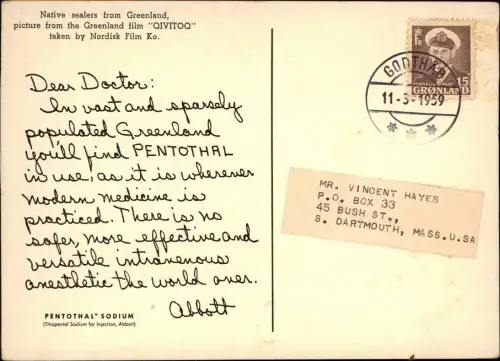 Native sealers from Greenland,
picture from the Greenland film "QIVITOQ"
taken by Nordisk Film Ko.
Dear Doctor:
In vast and sparsely
populated Greenland
you'll find PENTOTHAL
in use, as it is wherever
modern medicine is
practiced. There is no
safer, more effective and
versatile intravenous
anesthetic the world over.
Abbott
PENTOTHAL® SODIUM
(Thiopental Sodium for Injection, Abbott)
15
GRØNLAND
GODTHÅB
11-3-1959
MR. VINCENT HAYES
P.O. BOX 33
45 BUSH ST.,
S. DARTMOUTH, MASS.U.SA